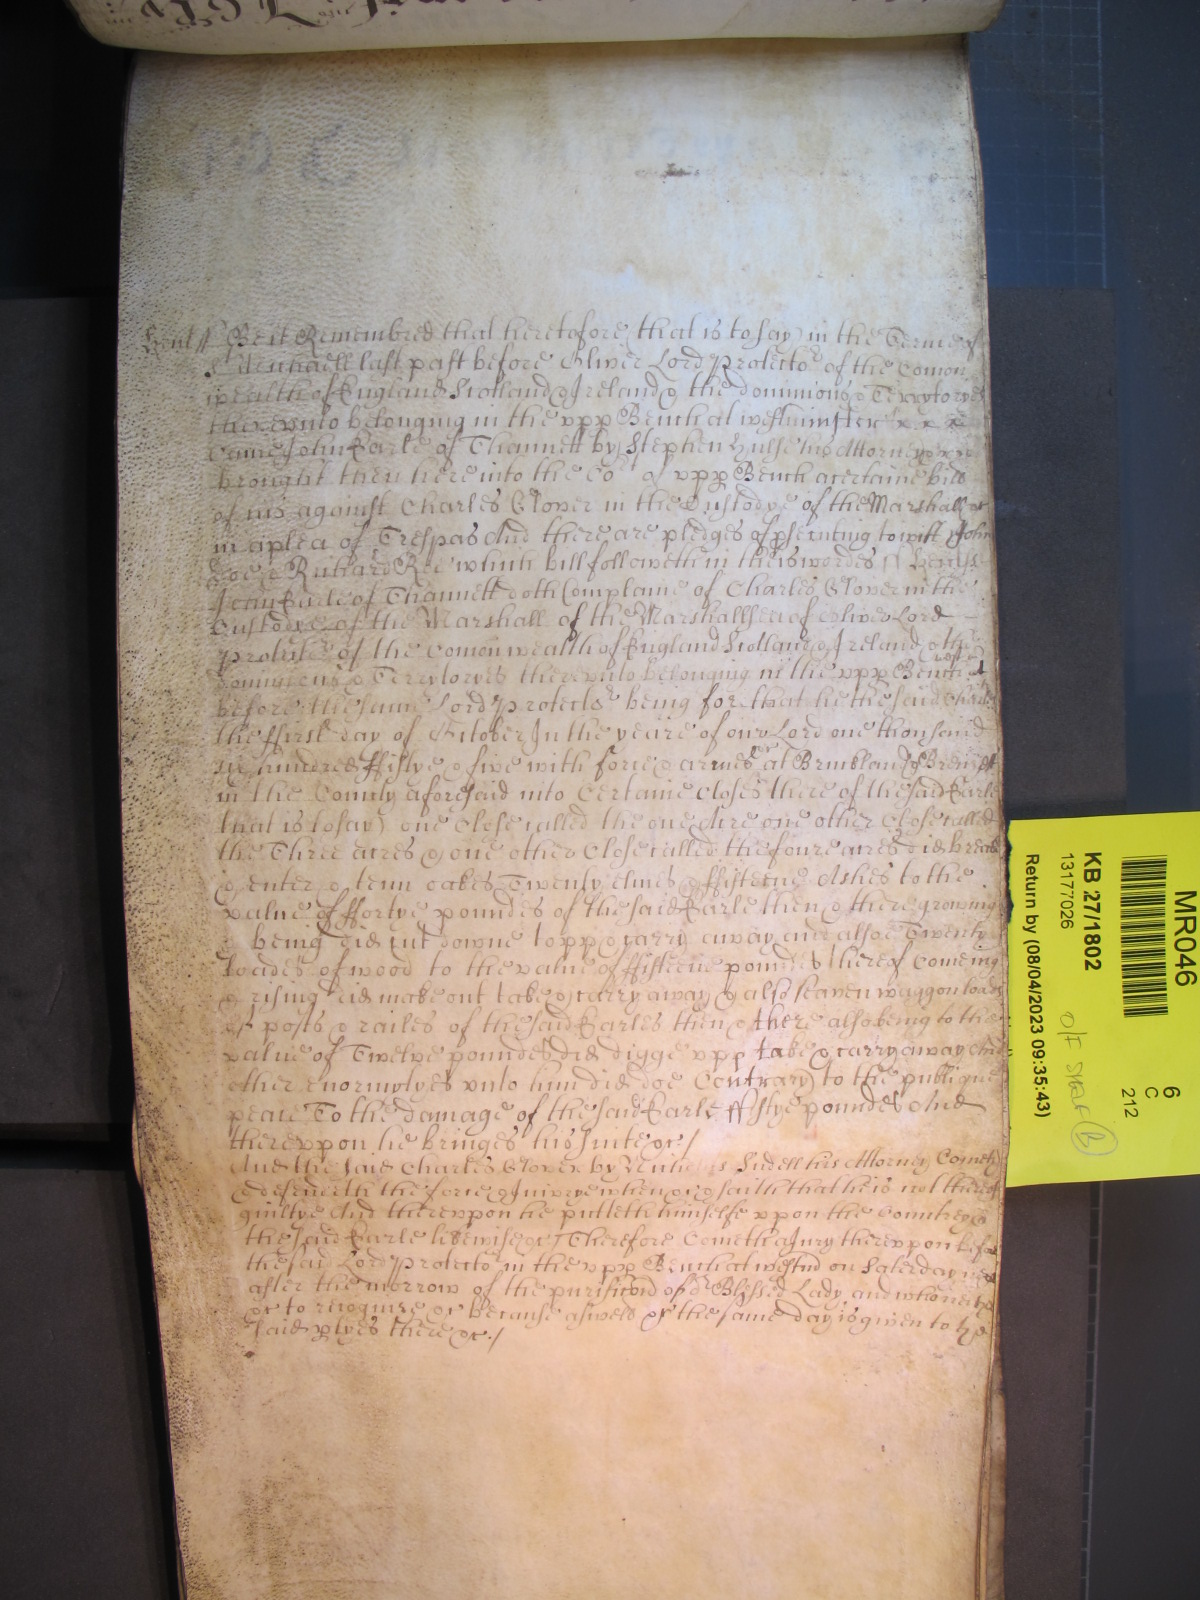 Kent ss Be it Remembred that heretofore that is to say in the Terme of
St Michaell last past before Oliver Lord Protector of the Comon
wealth of England Scotland & Ireland & the dominions & Terrytoryes
therevnto belonging in the vpp Bench at westminster
came John Earle of Thannett by Stephen Hulse his Attorney
brought then here into the Cort of vpp Bench a certaine bill
of his against Charles Glover in the Custodye of the Marshall &c
in a plea of Trespas And there are pledges of psecuting to witt John
Doe & Richard Roe which bill followeth in theis wordes ss Kent ss
John Earle of Thannett doth Complaine of Charles Glover in the
Custodye of the Marshall of the Marshallsea of Oliver Lord
Protector of the Comonwealth of England Scotland & Ireland & the
dominions & Terrytoryes therevnto belonging in the vpp Bench
before the same Lord Protector being for that he the said Charles
the ffirst day of October In the yeare of our Lord one thousand
six hundred ffiftye & five with force & armes &c at
in the County aforesaid into Certaine Closes there of the said Earle
that is to say one Close called the one Acre one other Close called
the Three acres & one other Close called the foure acres did breake
& enter & tenn oakes Twenty elmes & ffifteene Ashes to the
value of ffortye poundes of the said Earle then & there growing
& being did cut downe topp & carry away and alsoe Twenty
loades of wood to the value of ffifteene poundes thereof comeing
& rising did make out take & carry away & also seaven waggon loades
of posts & railes of the said Earles then & there also being to the
value of Twelve poundes did digge vpp take & carry away And
other enormytyes vnto him did doe Contrary to the publique
peace To the damage of the said Earle ffiftye poundes And
therevppon he bringes his suite &c /
And the said Charles Glover by Sudell his Attorney Cometh
& defendeth the force & Iniurye when &c & saith that he is not thereof
guiltye And therevpon he putteth himselfe vpon the Countrey &
the said Earle likewise &c / Therefore Cometh a Jury therevpon before
the said Lord Protector in the vpp Bench at westmr on Saterday next
after the morrow of the purificacon of or Blessed Lady and who neither
&c to recognize &c because aswell &c the same day is given to the
said ptyes there &c /
MR046
6
C
212
KB 27/1802
13177026
O/F SHELF (B)
Return by (08/04/2023 09:35:43)